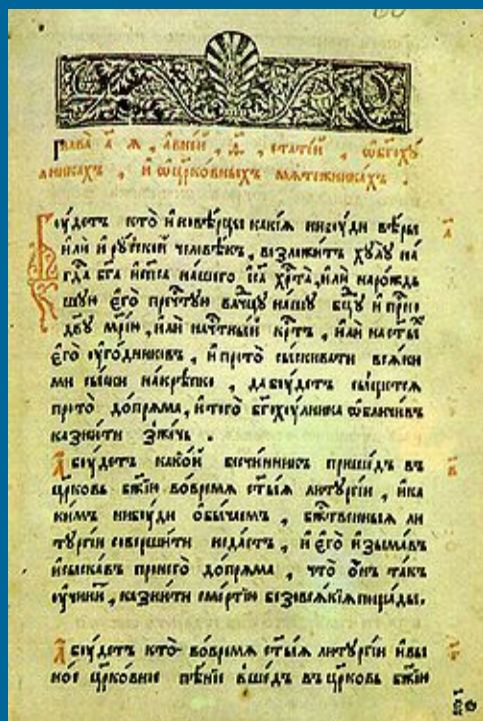 Глава̀ а҃ я , а в неи , ѳ҃ , статеи , ѡ бг҃оху
лникахъ , и ѡ цр҃ковныхъ мѧтежникахъ .
Боудетъ кто̀ и҆новѣрцы какі́ѧ нибꙋди вѣры
и҆ли и рꙋскои человѣкъ , возложитъ хꙋлꙋ на
гд҃а бг҃а и҆ сп҃са нашего і҆с҃а хр҃та̀ , и҆ли на рождь
шꙋю є҆го̀ преч҃тꙋю влч҃цꙋ нашꙋ бц҃ꙋ и҆ прн҃о
дв҃ꙋ мр҃і́ю , и҆ли на ч҃тныи кр҃тъ , и҆ли на ст҃ы́хъ
є҆го̀ ᲂу҆годниковъ , и҆ про то̀ сыскивати всѧки
ми сыски накрѣпко , да бꙋдетъ сыщетсѧ
про то̀ допрѧма , и҆ того бг҃охꙋлника ѡбличивъ
казнити зжечь .
А҆ бꙋдетъ какои бесчинникъ пришедъ въ
цр҃ковь бж҃ію во времѧ ст҃ы́ѧ литꙋргіи , и҆ ка
кимъ нибꙋди ѻ҆бычаемъ , бж҃ественныѧ ли
тꙋргіи совершити недастъ , и҆ є҆го̀ и҆зымавъ
и҆ сыскавъ про него допрѧма , что ѻ҆нъ такъ
ᲂу҆чинитъ , казнити смертію безо всѧкіѧ пощады.
А҆ бꙋдетъ кто̀ во времѧ ст҃ы́ѧ литꙋргіи и҆ в ы
ное цр҃ковное пѣніе вшедъ въ цр҃ковь бж҃ію